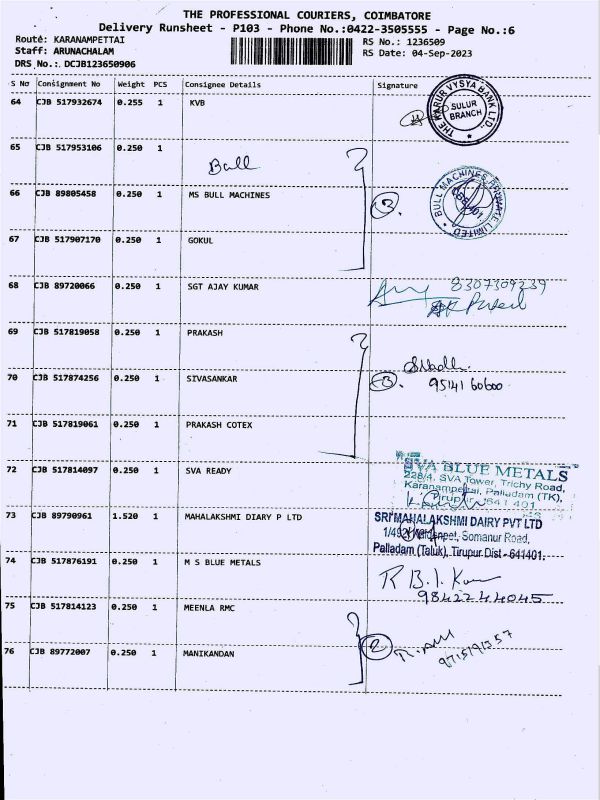 THE PROFESSIONAL COURIERS, COIMBATORE
Delivery Runsheet - P103 - Phone No.:0422-3505555 - Page No.:6
Route: KARANAMPETTAI
RS No.: 1236509
Staff: ARUNACHALAM
RS Date: 04-Sep-2023
DRS No.: DCJB123650906
S No Consignment No Weight PCS Consignee Details Signature
64 CJB 517932674 0.255 1 KVB
THE KARUR VYSYA BANK LTD.
SULUR
BRANCH
65 CJB 517953106 0.250 1
Ball
66 CJB 89805458 0.250 1 MS BULL MACHINES
3.
BULL MACHINES PRIVATE LIMITED
67 CJB 517907170 0.250 1 GOKUL
68 CJB 89720066 0.250 1 SGT AJAY KUMAR
8307309239
69 CJB 517819058 0.250 1 PRAKASH
70 CJB 517874256 0.250 1 SIVASANKAR
3.
95141 60600
71 CJB 517819061 0.250 1 PRAKASH COTEX
72 CJB 517814097 0.250 1 SVA READY
SVA BLUE METALS
228/4, SVA Tower, Trichy Road,
Karanampettai, Palladam (TK),
Tirupur - 641 401
73 CJB 89790961 1.520 1 MAHALAKSHMI DIARY P LTD
SRI MAHALAKSHMI DAIRY PVT LTD
Somanur Road,
Palladam (Taluk), Tirupur Dist - 641401.
74 CJB 517876191 0.250 1 M S BLUE METALS
9842244045
75 CJB 517814123 0.250 1 MEENLA RMC
76 CJB 89772007 0.250 1 MANIKANDAN
2